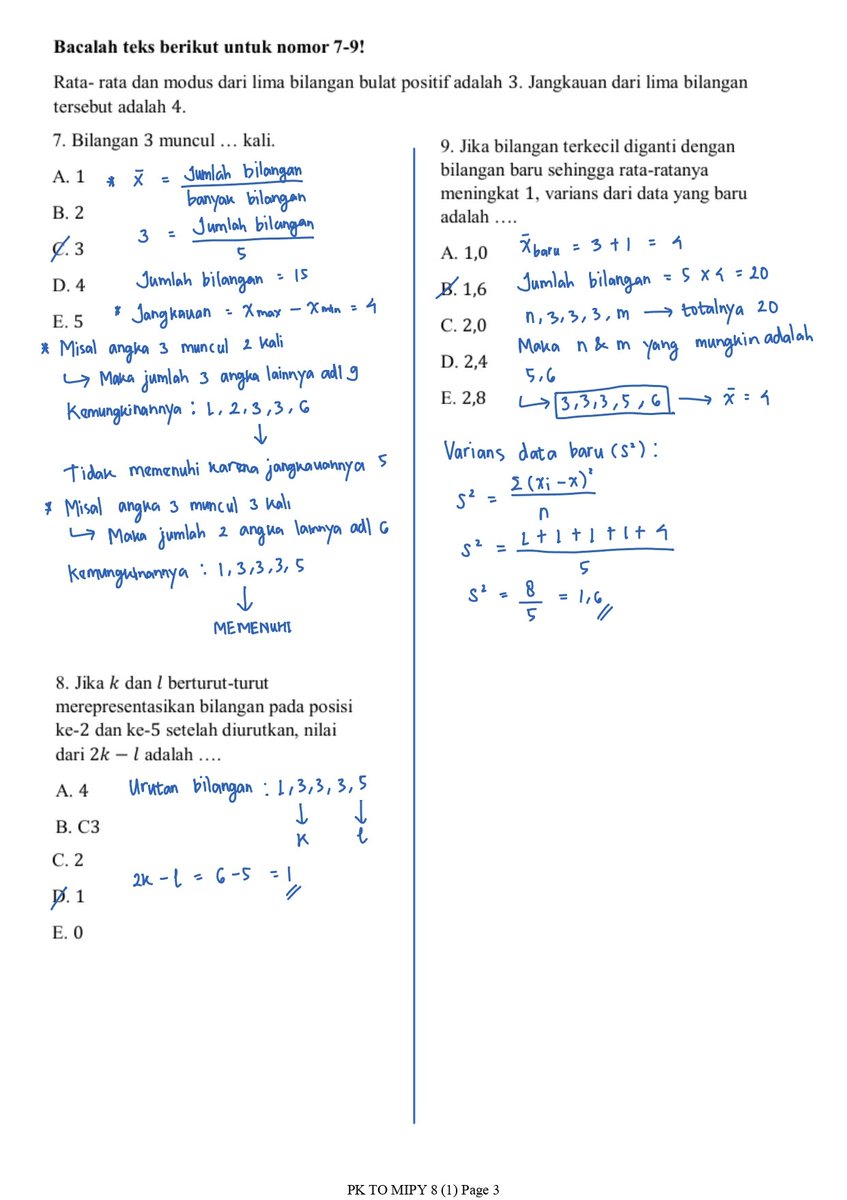 Bacalah teks berikut untuk nomor 7-9!
Rata- rata dan modus dari lima bilangan bulat positif adalah 3. Jangkauan dari lima bilangan
tersebut adalah 4.
7. Bilangan 3 muncul … kali.
A. 1
B. 2
C. 3
D. 4
E. 5
* x̄ = Jumlah bilangan / banyak bilangan
3 = Jumlah bilangan / 5
Jumlah bilangan = 15
* Jangkauan = Xmax − Xmin = 4
* Misal angka 3 muncul 2 kali
↳ Maka jumlah 3 angka lainnya adl 9
Kemungkinannya : 1, 2, 3, 3, 6
↓
Tidak memenuhi karena jangkauannya 5
* Misal angka 3 muncul 3 kali
↳ Maka jumlah 2 angka lainnya adl 6
Kemungkinannya : 1, 3, 3, 3, 5
↓
MEMENUHI
8. Jika k dan l berturut-turut
merepresentasikan bilangan pada posisi
ke-2 dan ke-5 setelah diurutkan, nilai
dari 2k − l adalah ….
A. 4
B. C3
C. 2
D. 1
E. 0
Urutan bilangan : 1, 3, 3, 3, 5
↓ ↓
k l
2k − l = 6 − 5 = 1
9. Jika bilangan terkecil diganti dengan
bilangan baru sehingga rata-ratanya
meningkat 1, varians dari data yang baru
adalah ….
A. 1,0
B. 1,6
C. 2,0
D. 2,4
E. 2,8
x̄ baru = 3 + 1 = 4
Jumlah bilangan = 5 × 4 = 20
n, 3, 3, 3, m → totalnya 20
Maka n & m yang mungkin adalah
5, 6
↳ 3, 3, 3, 5, 6 → x̄ = 4
Varians data baru (s²) :
s² = Σ (xi − x)² / n
s² = 1 + 1 + 1 + 1 + 4 / 5
s² = 8 / 5 = 1,6
PK TO MIPY 8 (1) Page 3